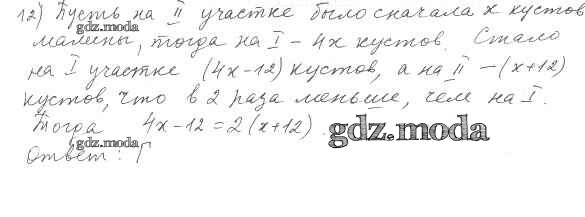 12) Пусть на II участке было сначала x кустов
gdz.moda
малины, тогда на I – 4x кустов. Стало
на I участке (4x-12) кустов, а на II – (x+12)
кустов, что в 2 раза меньше, чем на I.
Тогда 4x-12=2(x+12).
gdz.moda
gdz.moda
Ответ: Г